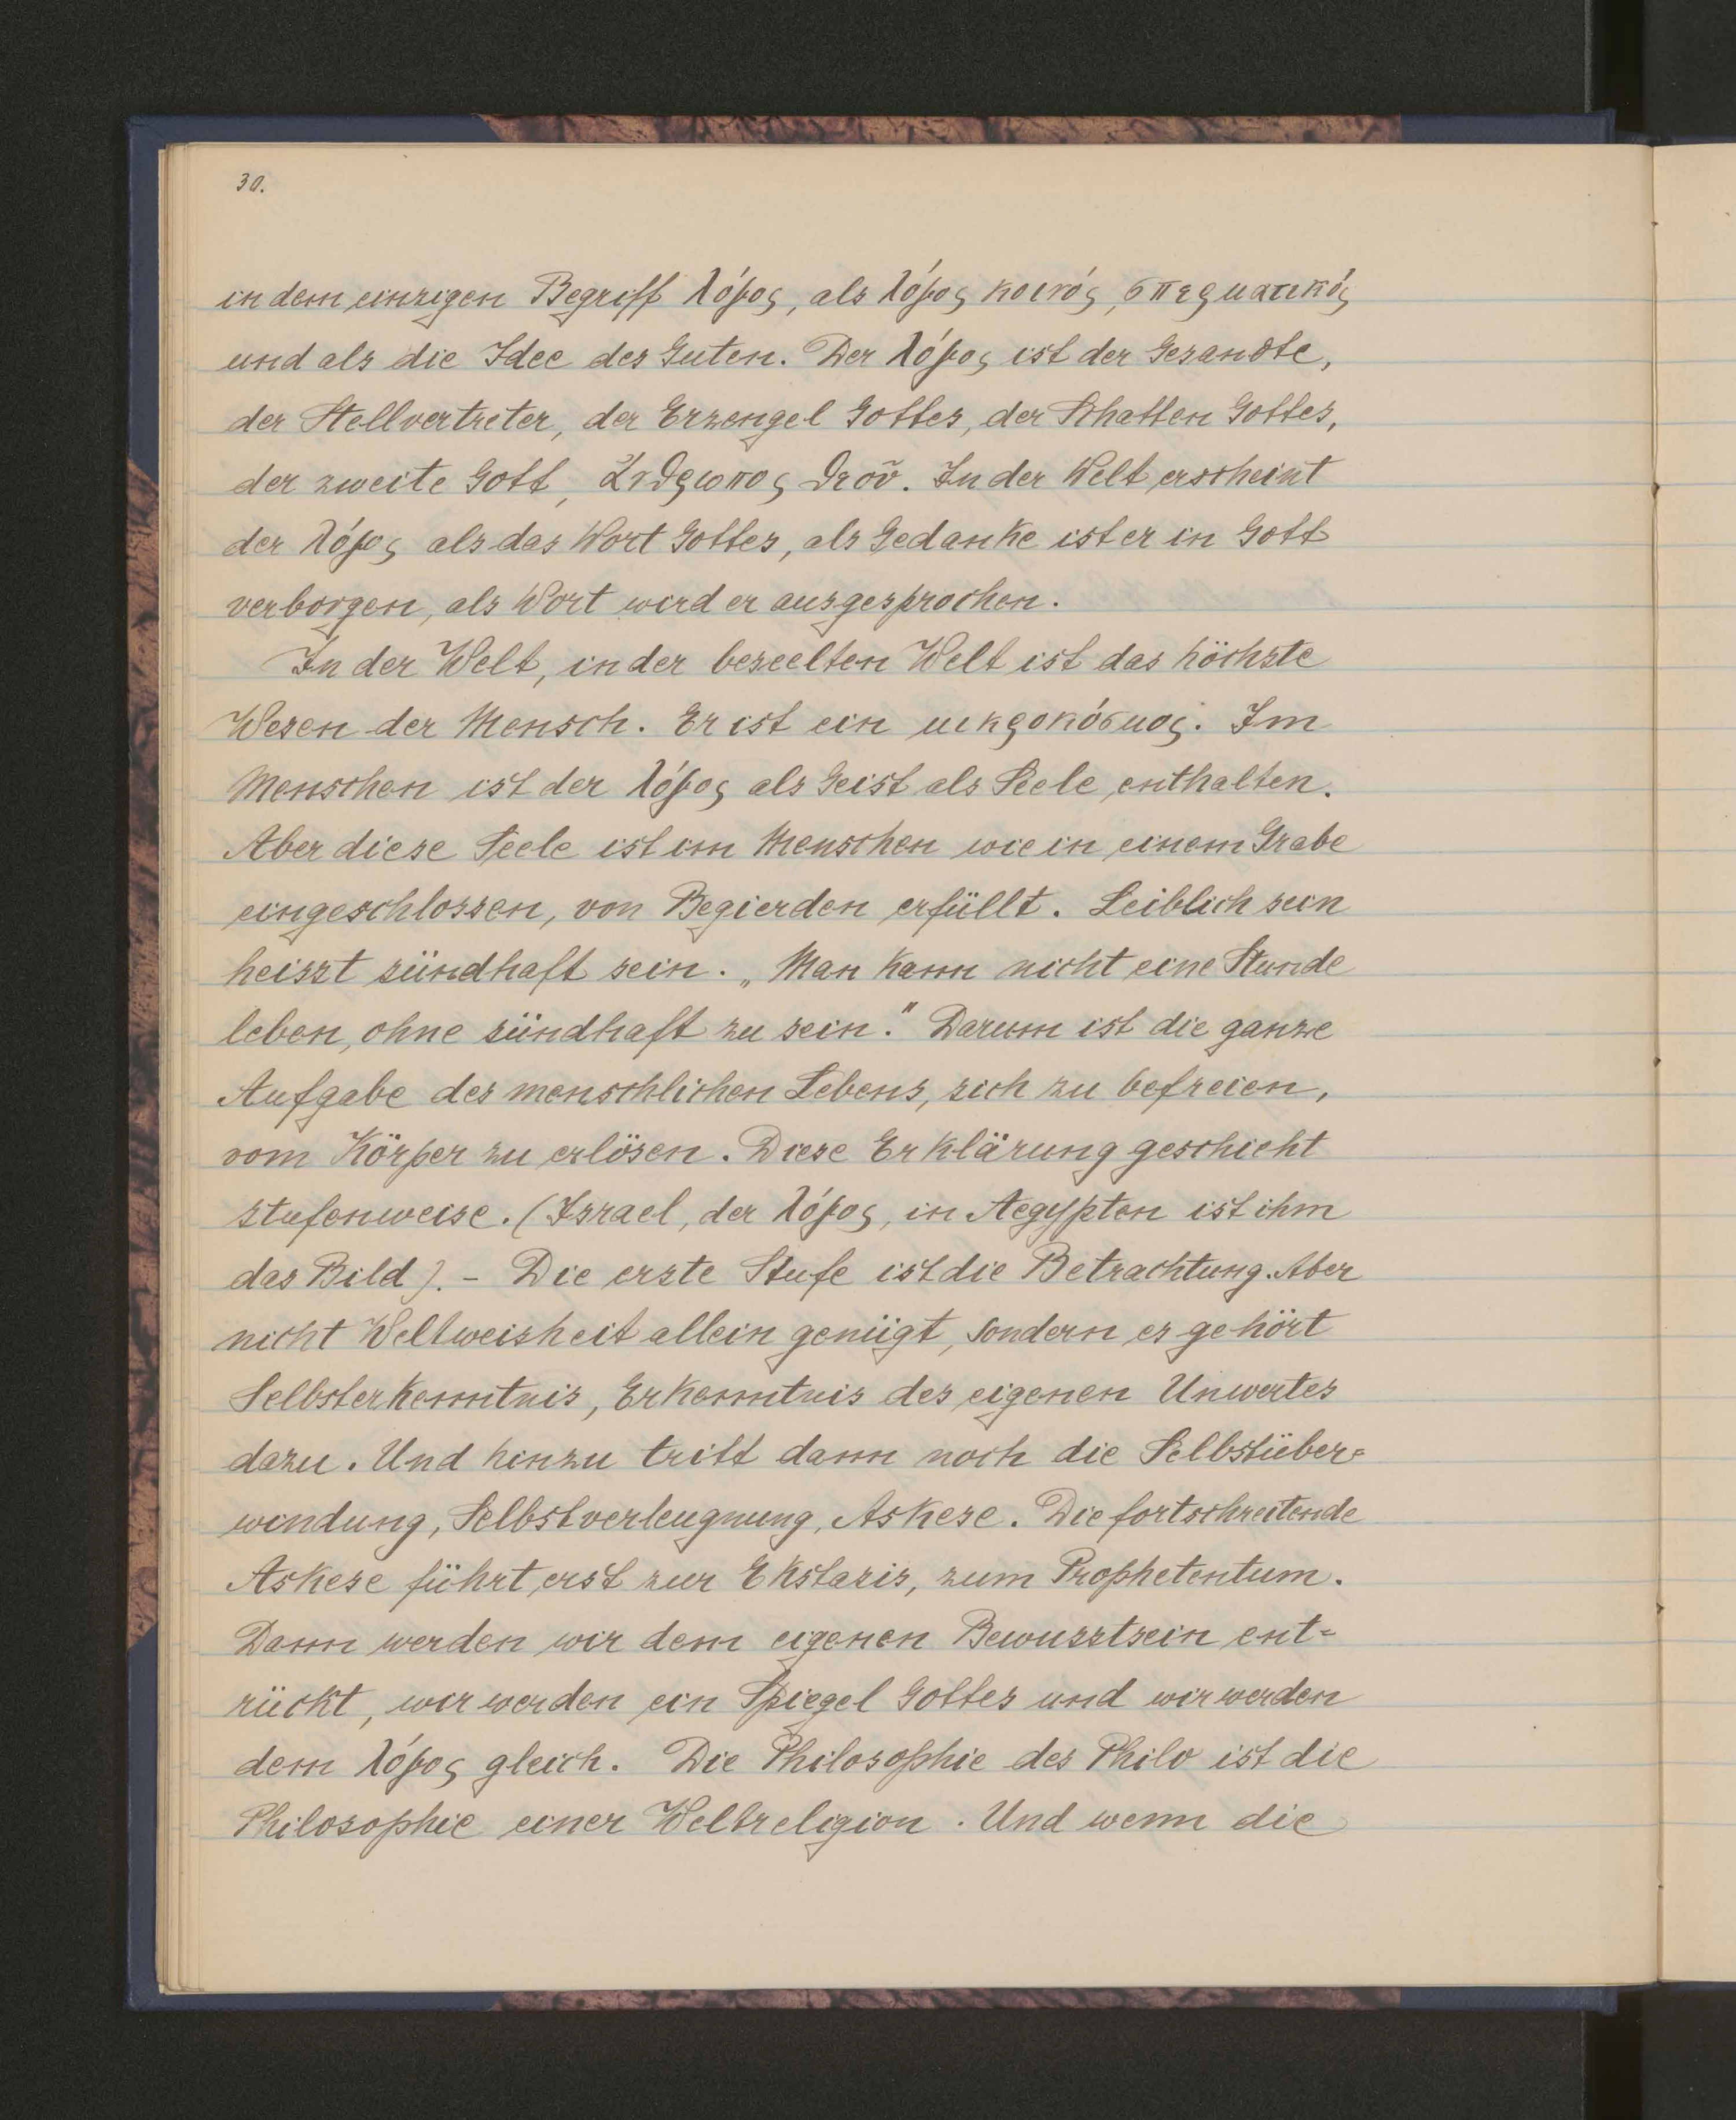 30.
in dem einzigen Begriff λόγος, als λόγος κοινός, σπερματικός
und als die Idee des Guten. Der λόγος ist der Gesandte,
der Stellvertreter, der Erzengel Gottes, der Schatten Gottes,
der zweite Gott, ἄνθρωπος θεοῦ. In der Welt erscheint
der λόγος als das Wort Gottes, als Gedanke ist er in Gott
verborgen, als Wort wird er ausgesprochen.
In der Welt, in der beseelten Welt ist das höchste
Wesen der Mensch. Er ist ein μικροκόσμος. Im
Menschen ist der λόγος als Geist als Seele enthalten.
Aber diese Seele ist im Menschen wie in einem Grabe
eingeschlossen, von Begierden erfüllt. Leiblich sein
heisst sündhaft sein. „Man kann nicht eine Stunde
leben, ohne sündhaft zu sein." Darum ist die ganze
Aufgabe des menschlichen Lebens, sich zu befreien,
vom Körper zu erlösen. Diese Erklärung geschieht
stufenweise. (Israel, der λόγος, in Aegypten ist ihm
das Bild). – Die erste Stufe ist die Betrachtung. Aber
nicht Weltweisheit allein genügt, sondern es gehört
Selbsterkenntnis, Erkenntnis des eigenen Unwertes
dazu. Und hinzu tritt dann noch die Selbstüber=
windung, Selbstverleugnung, Askese. Die fortschreitende
Askese führt erst zur Ekstasis, zum Prophetentum.
Dann werden wir dem eigenen Bewusstsein ent=
rückt, wir werden ein Spiegel Gottes und wir werden
dem λόγος gleich. Die Philosophie des Philo ist die
Philosophie einer Weltreligion. Und wenn die